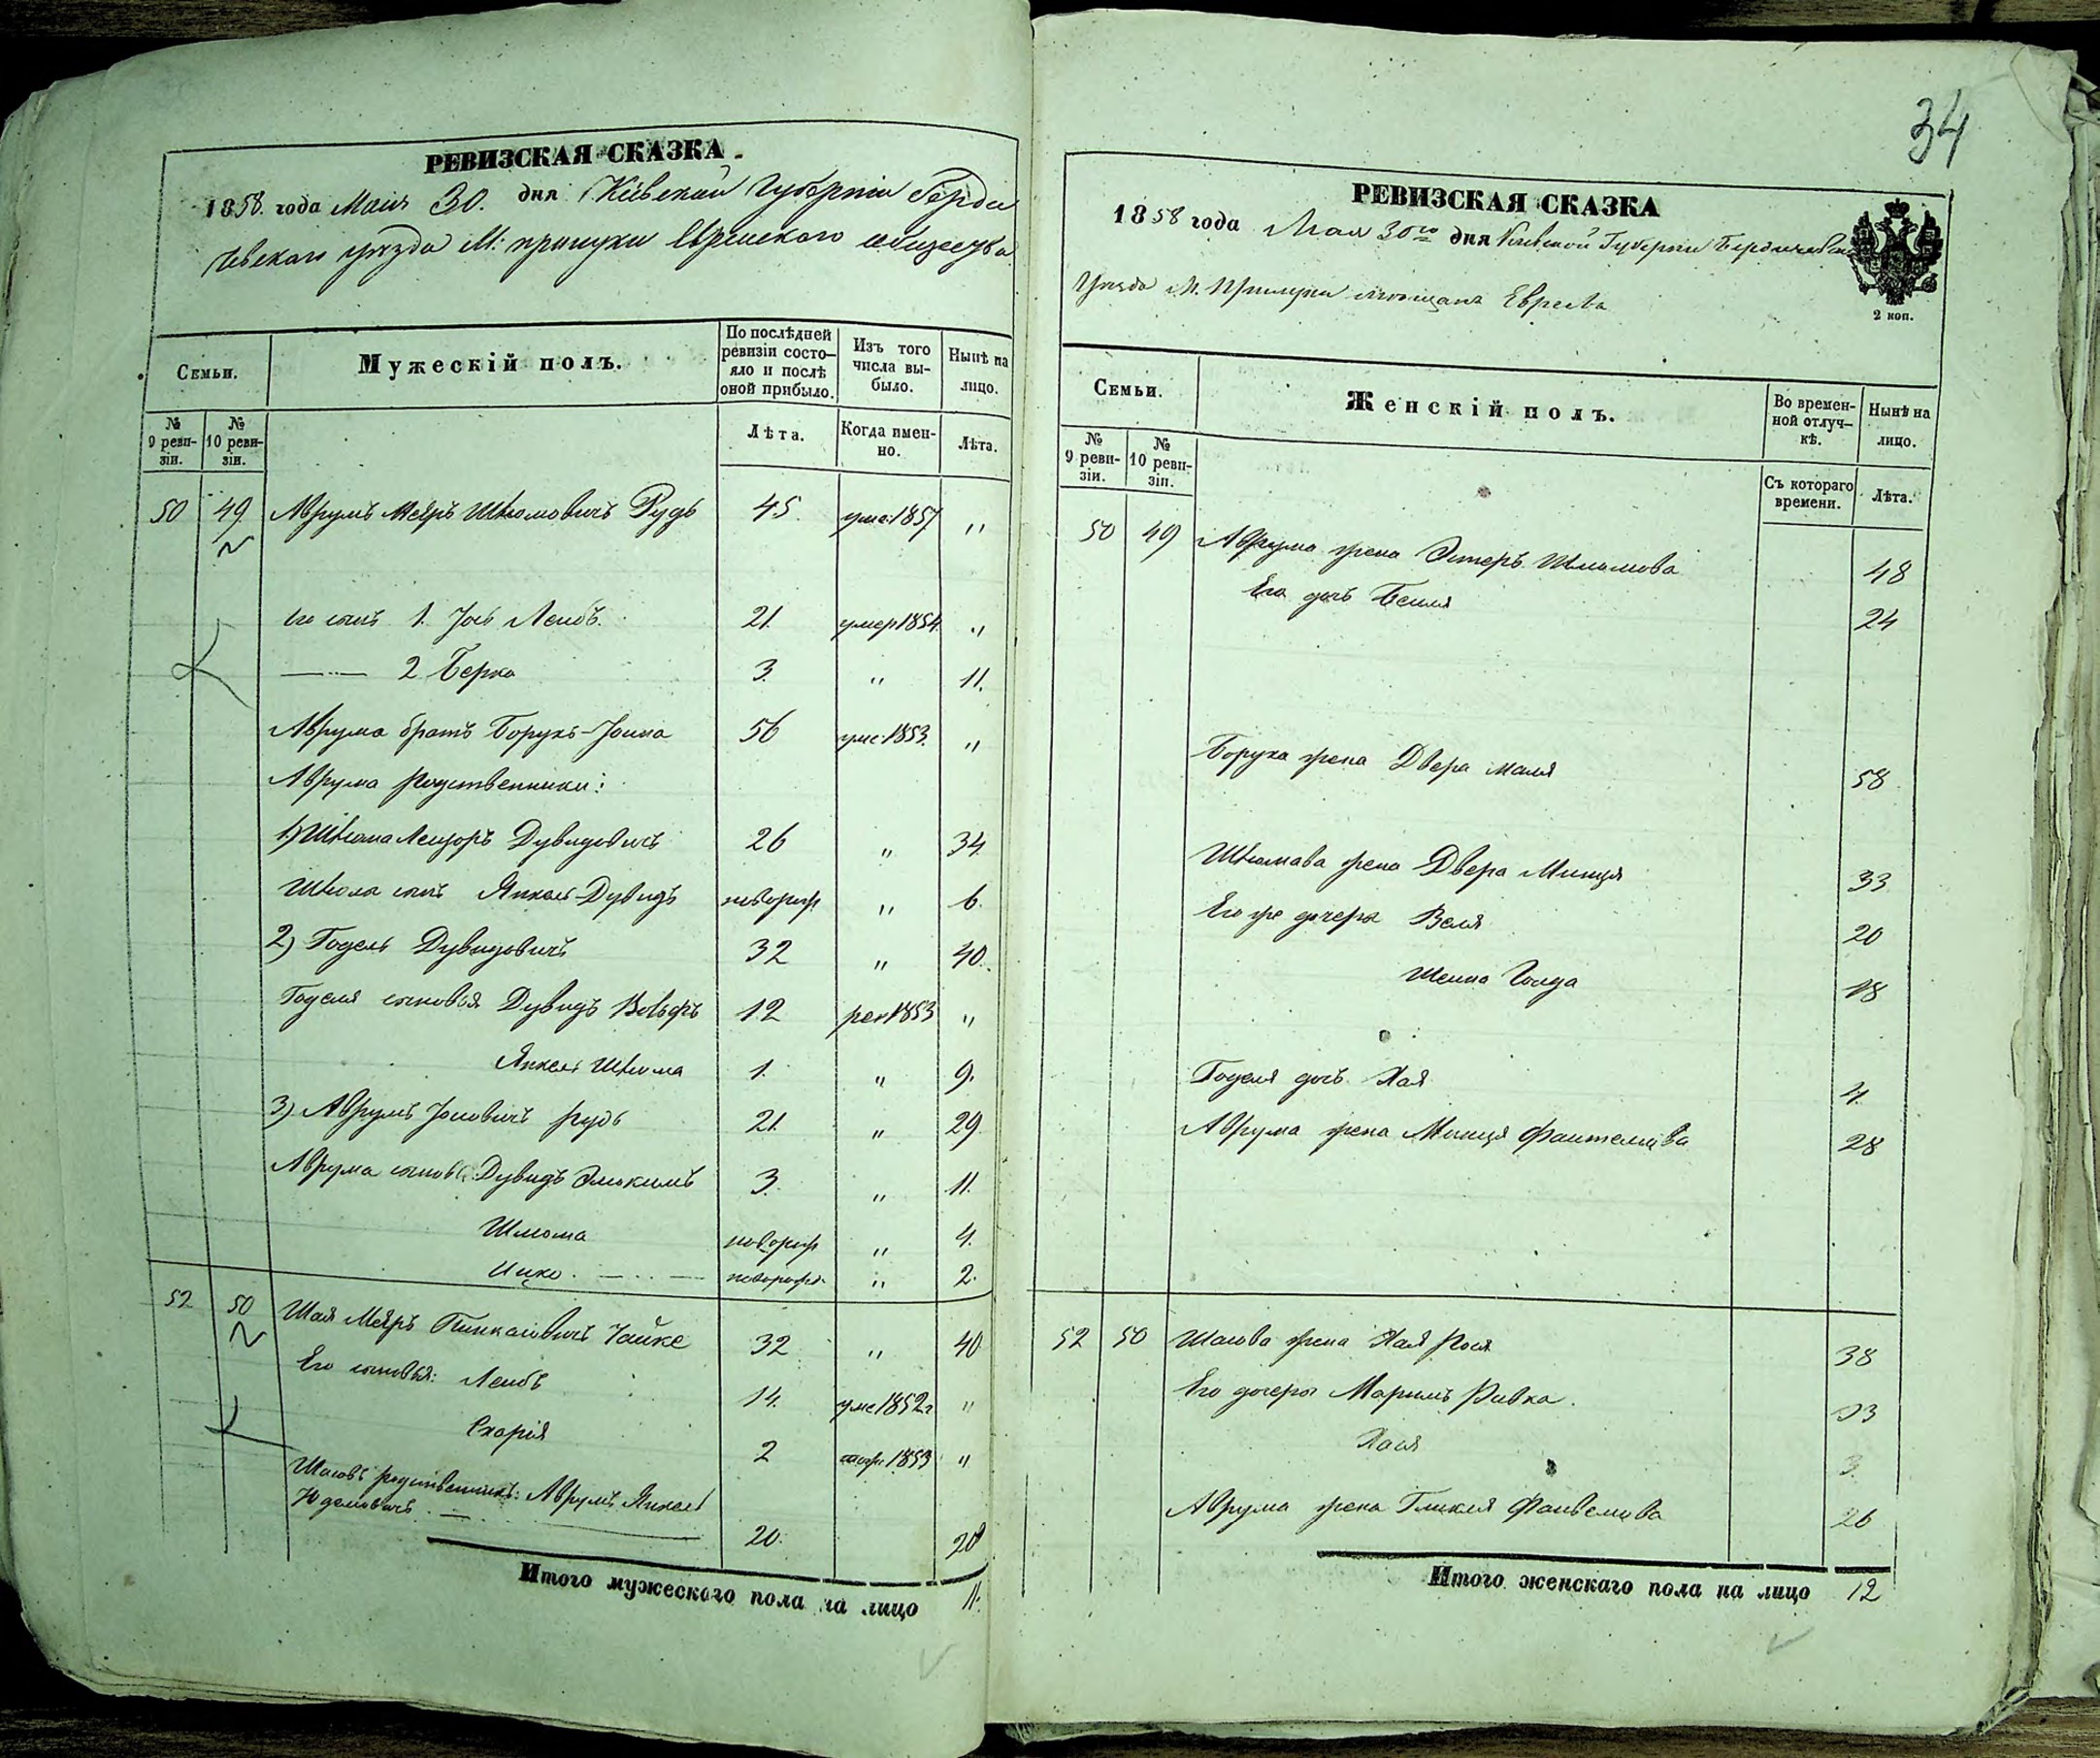 РЕВИЗСКАЯ СКАЗКА
1858. года Маія 30. дня Кіевской Губерніи Берди
чевскаго уѣзда М: прилуки Еврейскаго общества
Семьи.
Мужескій полъ.
По послѣдней ревизіи состо-
яло и послѣ оной прибыло.
Изъ того числа вы-
было.
Нынѣ на лицо.
№ 9 реви-
зіи.
№ 10 реви-
зіи.
Лѣта.
Когда имен-
но.
Лѣта.
50 49 Аврумъ Меяръ Шліомовичъ Рудь 45 уме: 1857 "
его сынъ 1. Іось Лейбъ. 21. умер 1854. "
2 Берко 3. " 11.
Аврума братъ Борухъ-Іойна 56 уме: 1853. "
Аврума родственники:
1) Шліома Лейзоръ Дувидовичъ 26 " 34
Шліома сынъ Янкель-Дувидъ новорож " 6.
2) Годель Дувидовичъ 32 " 40.
Годеля сыновья Дувидъ Вольфъ 12 рек 1853 "
Янкель Шліома 1. " 9.
3) Аврумъ Іосиовичъ рудь 21. " 29
Аврума сынов Дувидъ Элюкимъ 3. " 11.
Шліома новорож " 4.
Ицко новорож. " 2.
52 50 Шая Меяръ Пинкасовичъ Чайке 32 " 40
Его сыновья: Лейбъ 14. уме 1852 г "
Схарія 2 1853 "
Шаевъ родственникъ: Аврумъ Янкель
Юделовичъ 20. 28
Итого мужескаго пола на лицо 11.
34
РЕВИЗСКАЯ СКАЗКА
1858 года Мая 30го дня Кіевской Губерніи Бердичевска
Уѣзда М. Прилуки мѣщанъ Евреевъ
2 коп.
Семьи.
Женскій полъ.
Во времен-
ной отлуч-
кѣ.
Нынѣ на лицо.
№ 9 реви-
зіи.
№ 10 реви-
зіи.
Съ котораго времени.
Лѣта.
50 49 Аврума жена Эстеръ Шліомова 48
Его дочь Бейля 24
Боруха жена Двера Маля 58
Шліомава жена Двера Минця 33
Его же дочери Веля 20
Шейна Голда 18
Годеля дочь Хая 4.
Аврума жена Минця 28
52 50 Шаева жена Хая Рося 38
Его дочери Маримъ Ривка. 23
Хася 3.
Аврума жена Гликля 26
Итого женскаго пола на лицо 12